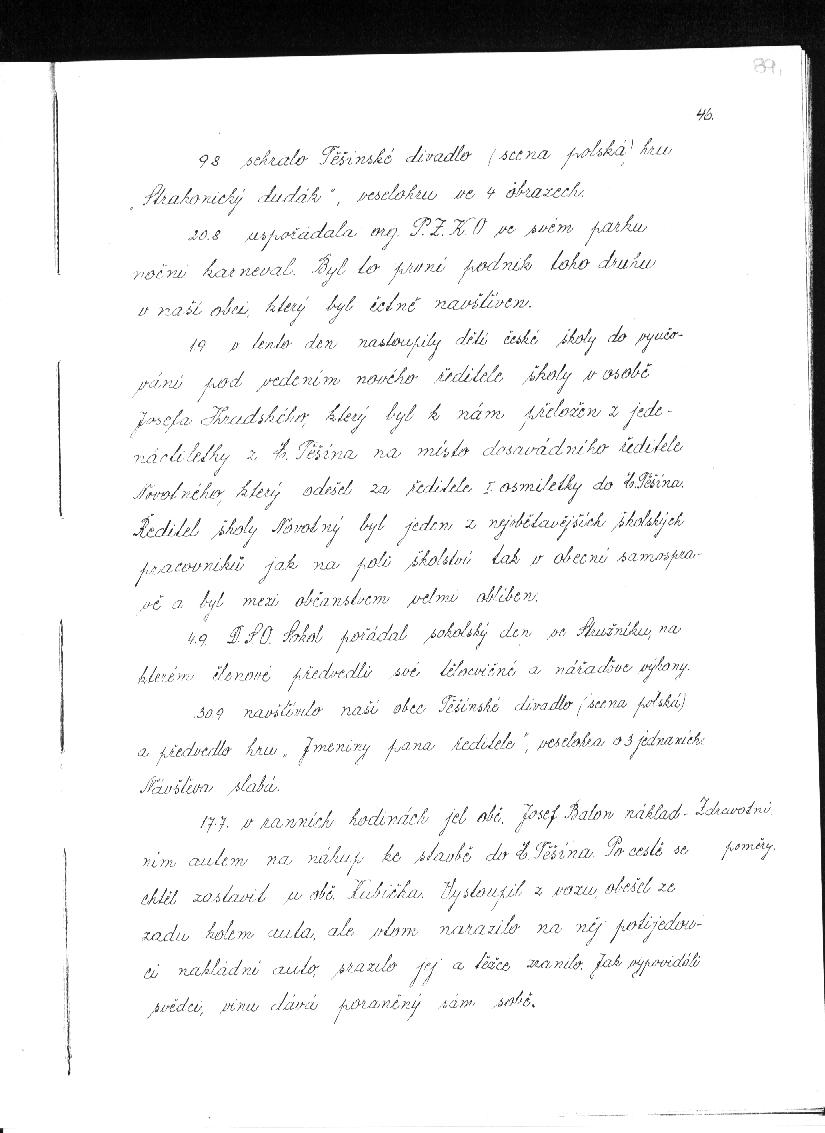 89,
46.
9 8 sehralo Těšínské divadlo (scena polská) hru
"Strakonický dudák", veselohru ve 4 obrazech.
20.8 uspořádala org. P.Z.K.O ve svém parku
noční karneval. Byl to první podnik toho druhu
v naší obci, který byl četně navštíven.
1 9 v tento den nastoupily děti české školy do vyučo-
vání pod vedením nového ředitele školy v osobě
Josefa Hradského, který byl k nám přeložen z jede-
náctiletky z Č. Těšína na místo dosavádního ředitele
Novotného, který odešel za ředitele I. osmiletky do Č. Těšína.
Ředitel školy Novotný byl jeden z nejobětavějších školských
pracovníků jak na poli školství tak v obecní samosprá-
vě a byl mezi občanstvem velmi oblíben.
4.9. D.S.O. Sokol pořádal sokolský den ve Stružníku, na
kterém členové předvedli své tělocvičné a nářaďove výkony.
30 9 navštívilo naší obec Těšínské divadlo (scena polská)
a předvedlo hru "Jmeniny pana ředitele", veselohra o 3 jednáních.
Návštěva slabá.
17.7. v ranních hodinách jel obč. Josef Balon náklad- Zdravotní
ním autem na nákup ke stavbě do Č. Těšína. Po cestě se poměry.
chtěl zastavit u obč. Kubička. Vystoupil z vozu, obešel ze
zadu kolem auta, ale vtom narazilo na něj potijedou-
cí nakládní auto, srazilo jej a těžce zranilo. Jak vypovídáli
svědci, vinu dává poraněný sám sobě.